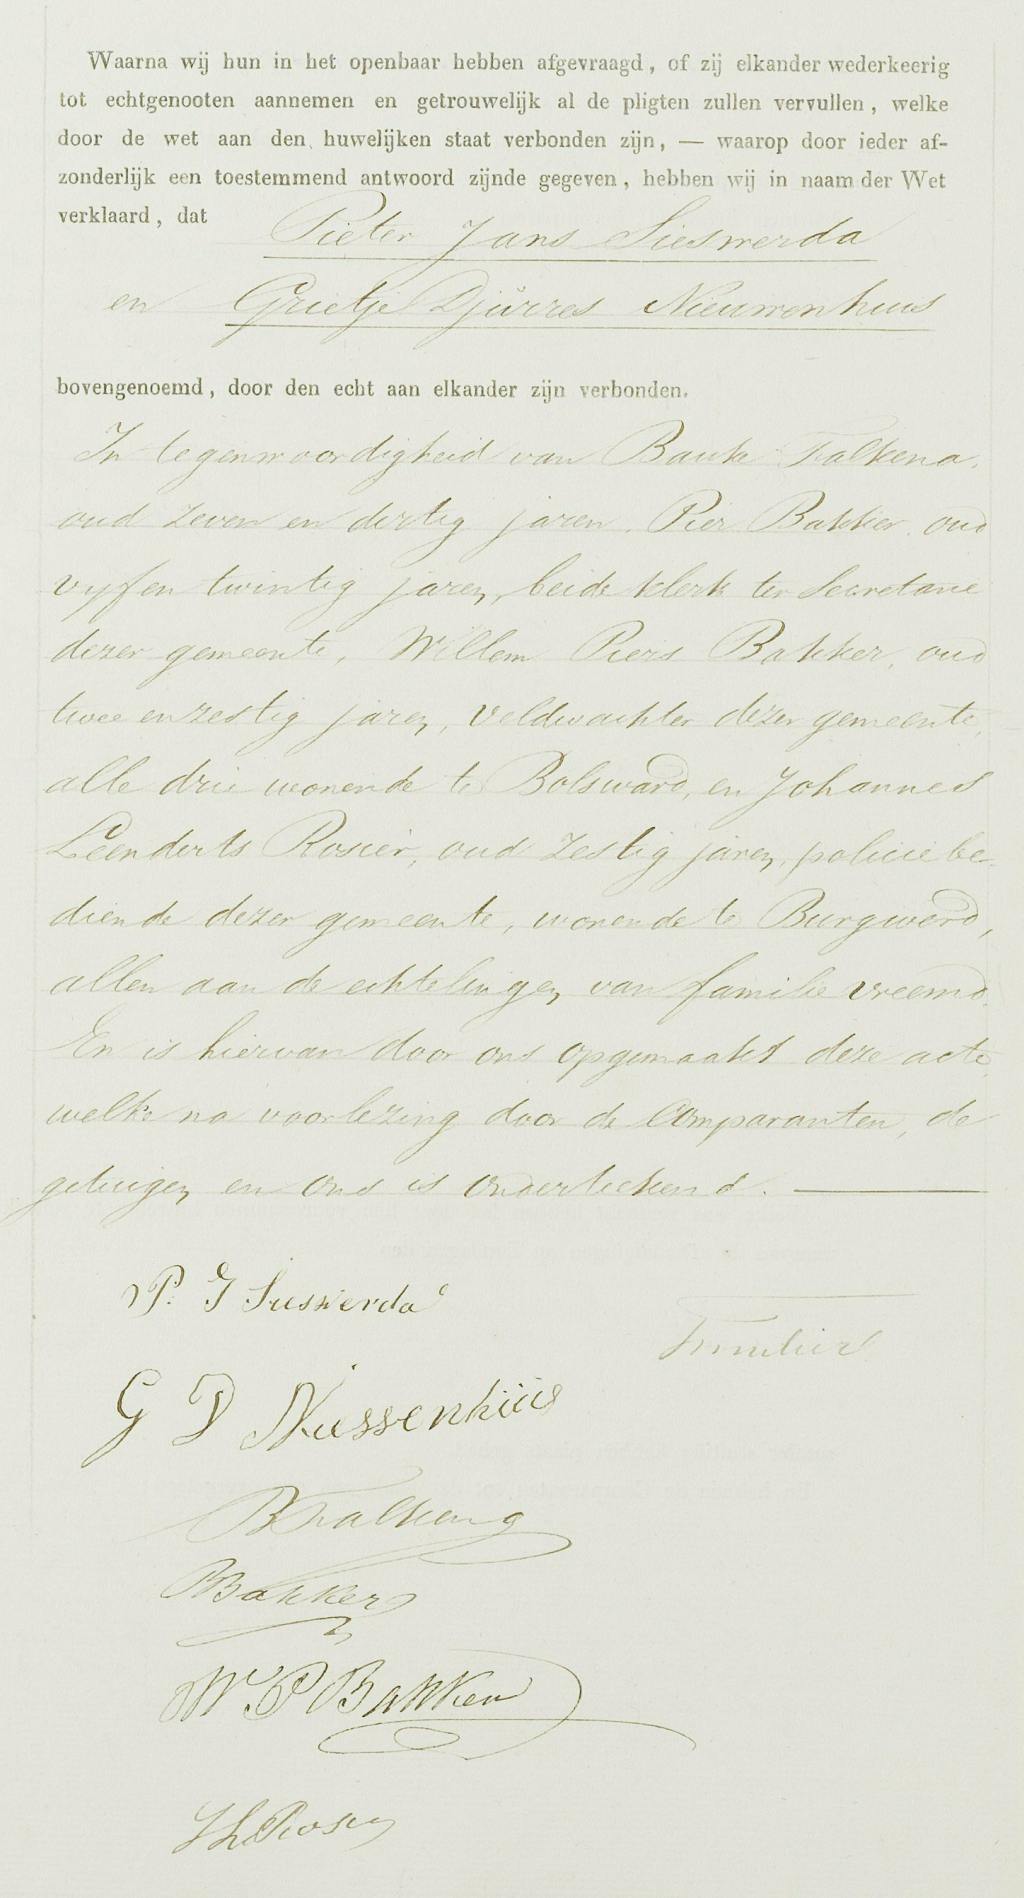 Waarna wij hun in het openbaar hebben afgevraagd, of zij elkander wederkeerig
tot echtgenooten aannemen en getrouwelijk al de pligten zullen vervullen, welke
door de wet aan den huwelijken staat verbonden zijn, — waarop door ieder af-
zonderlijk een toestemmend antwoord zijnde gegeven, hebben wij in naam der Wet
verklaard, dat Pieter Jans Sieswerda
en Grietje Djurres Nieuwenhuis
bovengenoemd, door den echt aan elkander zijn verbonden.
In tegenwoordigheid van Bauke Falkena,
oud zeven en dertig jaren, Pier Bakker, oud
vyf en twintig jaren, beide klerk ter Secretarie
dezer gemeente, Willem Piers Bakker, oud
twee en zestig jaren, veldwachter dezer gemeente,
alle drie wonende te Bolsward, en Johannes
Leenderts Rosier, oud zestig jaren, policie be-
diende dezer gemeente, wonende te Burgwerd,
allen aan de echtelingen van familie vreemd.
En is hiervan door ons opgemaakt deze acte,
welke na voorlezing door de Comparanten, de
getuigen en ons is onderteekend. —
P. J Sieswerda
G D Niessenhüis
B Falkena
P Bakker
W. P Bakker
J L Rosier